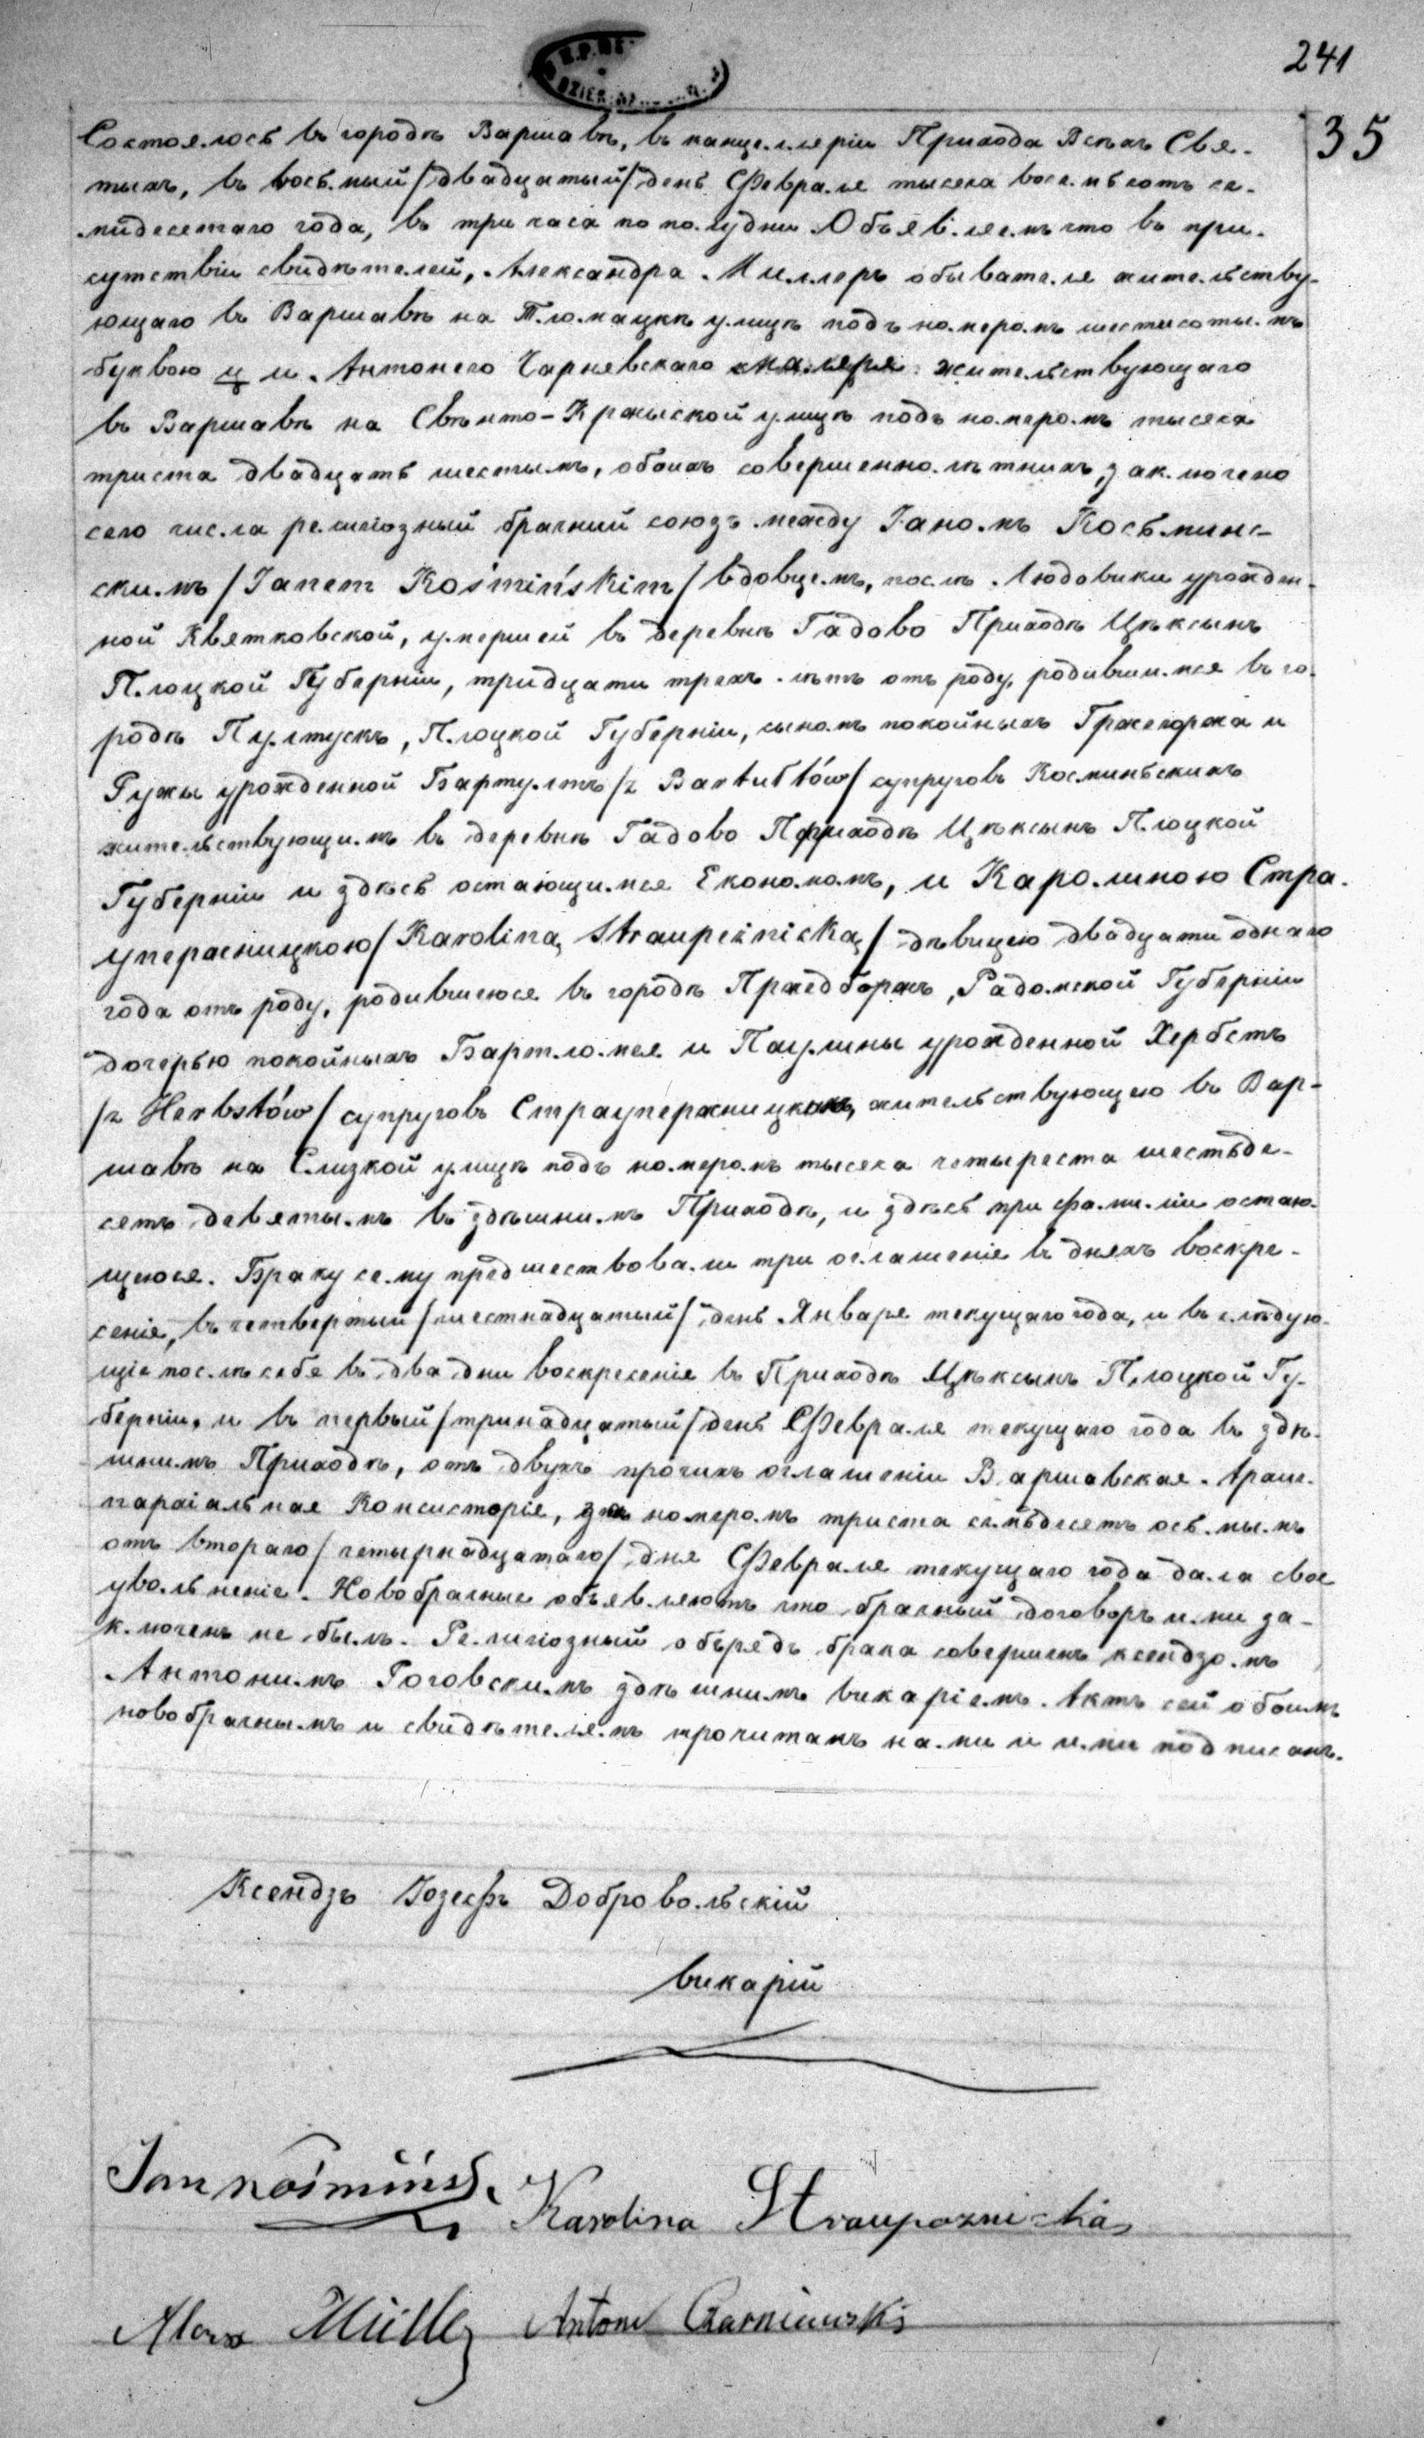 241
35
Состоялось въ городѣ Варшавѣ, въ канцелляріи Прихода Всѣхъ Свя-
тыхъ, въ восьмый /двадцатый/ день Февраля тысяча восемьсотъ се-
мидесятаго года, въ три часа по полудни. Объявляемъ что въ при-
сутствіи свидѣтелей, Александра Миллеръ обывателя жительству-
ющаго въ Варшавѣ на Тломацкѣ улицѣ подъ номеромъ шестисотымъ
буквою ц и Антонего Чарневскаго маляра жительствующаго
въ Варшавѣ на Свѣнто-Кржыской улицѣ подъ номеромъ тысяча
триста двадцать шестымъ, обоихъ совершеннолѣтнихъ, заключено
сего числа религіозный брачный союзъ между Іаномъ Косьминс-
скимъ /Janem Kośmińskim/ вдовцемъ, послѣ Людовики урожден-
ной Квятковской, умершей въ деревнѣ Гадово Приходѣ Цѣксынъ
Плоцкой Губерніи, тридцати трехъ лѣтъ отъ роду, родившимся въ го-
родѣ Пултускъ, Плоцкой Губерніи, сыномъ покойныхъ Гржегоржа и
Ружы урожденной Бартултъ /z Bartułtów/ супруговъ Косминьскихъ
жительствующимъ въ деревнѣ Гадово Приходѣ Цѣксынъ Плоцкой
Губерніи и здѣсь остающимся Економомъ, и Каролиною Стра-
упержницкою /Karoliną Straupeżnicką/ дѣвицею двадцати однаго
года отъ роду, родившеюся въ городѣ Пржедборжъ, Радомской Губерніи
дочерью покойныхъ Бартломея и Паулины урожденной Хербстъ
/z Herbstów/ супруговъ Страупержницкихъ, жительствующею въ Вар-
шавѣ на Слизкой улицѣ подъ номеромъ тысяча четыреста шестьде-
сятъ девятымъ въ здѣшнимъ Приходѣ, и здѣсь при фамиліи остаю-
щеюся. Браку сему предшествовали три оглашеніе въ дняхъ воскре-
сеніе, въ четвертый /шестнадцатый/ день Января текущаго года, и въ слѣдую-
щіе послѣ себя въ два дни воскресенія въ Приходѣ Цѣксынъ Плоцкой Гу-
берніи, и въ первый /тринадцатый/ день Февраля текущаго года въ здѣ-
шнимъ Приходѣ, отъ двухъ прочихъ оглашеніи Варшавская Архи-
пархіальная Консисторія, за номеромъ триста семьдесятъ осьмымъ
отъ втораго /четырнадцатаго/ дня Февраля текущаго года дала свое
увольненіе. Новобрачные объявляютъ что брачный договоръ ими за-
ключенъ не былъ. Религіозный обърядъ брака совершенъ ксендзомъ
Антонимъ Роговскимъ здѣшнимъ викаріемъ. Актъ сей обоимъ
новобрачнымъ и свидѣтелямъ прочитанъ нами и ими подписанъ.
Ксендзъ Іозефъ Добровольскій
викарій
Jan Kośmiński
Karolina Straupoznicka
Alex Müller Antoni Czarniewski